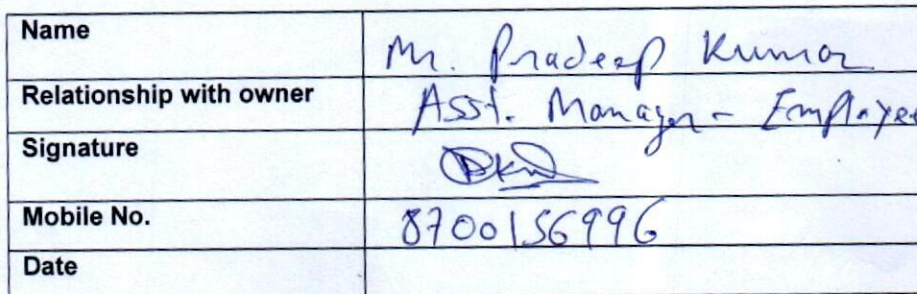 Name Mr. Pradeep Kumar
Relationship with owner Asst. Manager - Employee
Signature
Mobile No. 8700156996
Date